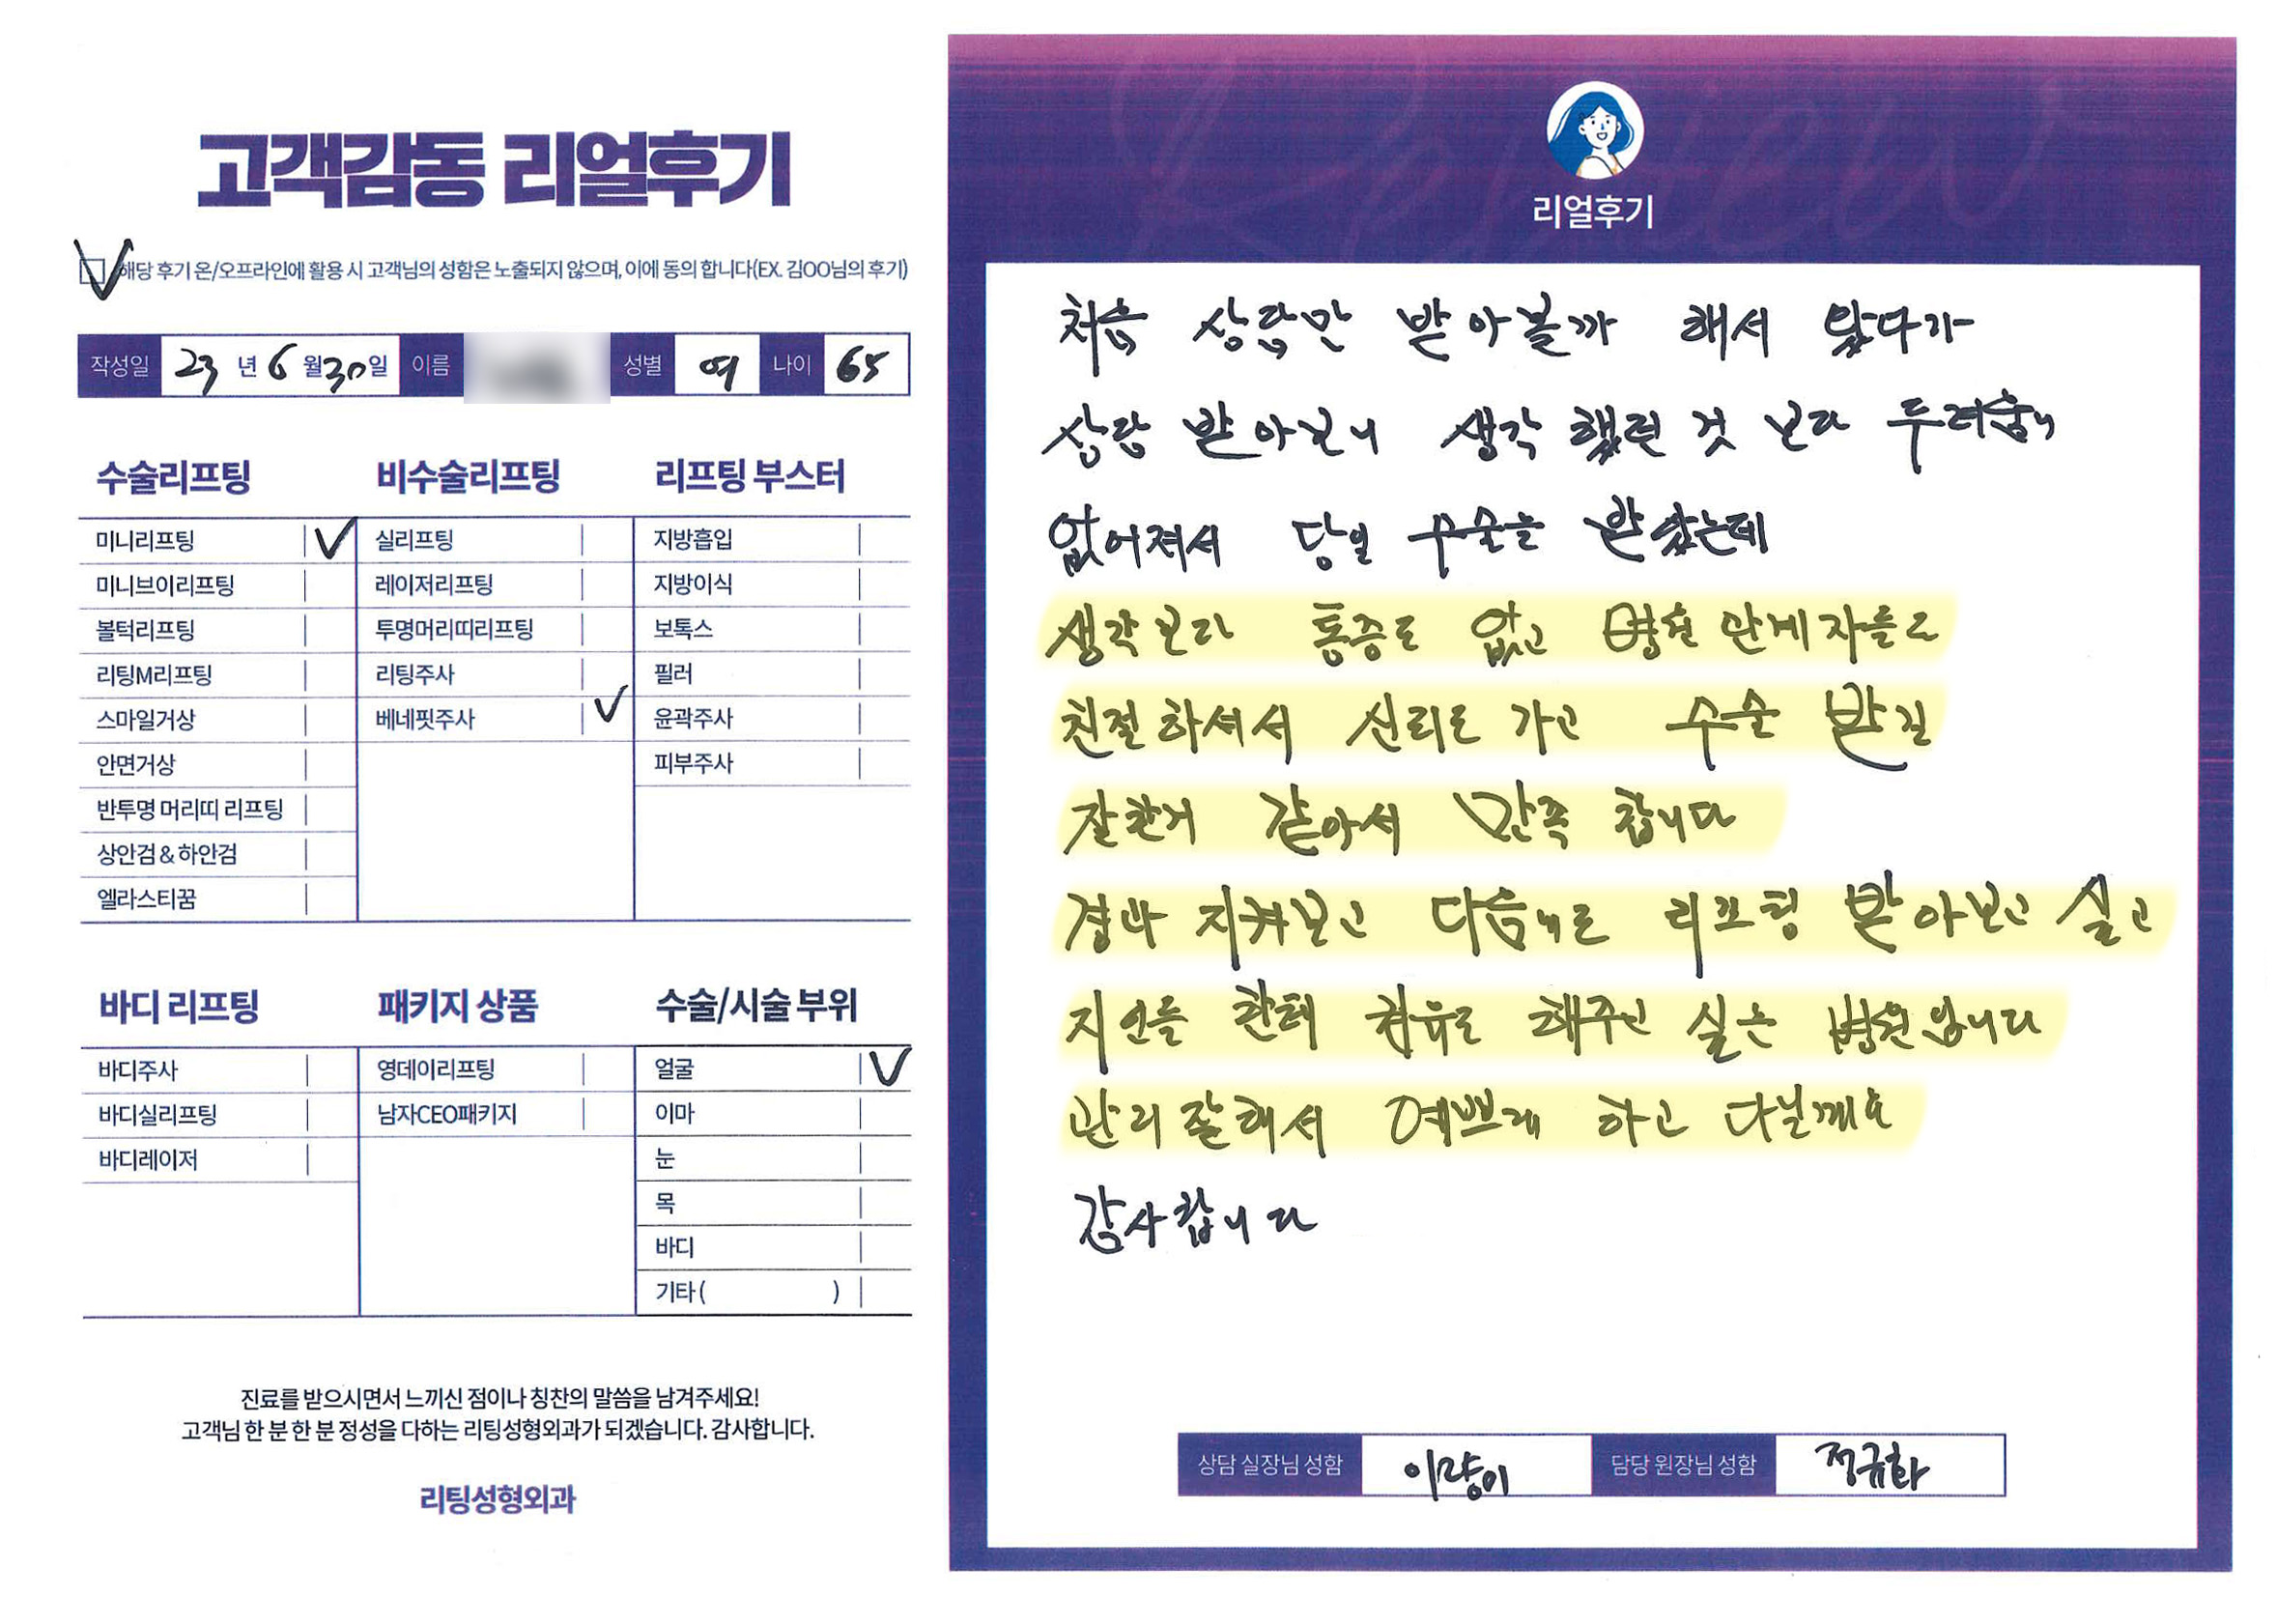 고객감동 리얼후기
해당 후기 온/오프라인에 활용 시 고객님의 성함은 노출되지 않으며, 이에 동의 합니다(EX. 김OO님의 후기)
작성일 23 년 6 월 30 일 이름 성별 여 나이 65
수술리프팅
미니리프팅
미니브이리프팅
볼턱리프팅
리팅M리프팅
스마일거상
안면거상
반투명 머리띠 리프팅
상안검 & 하안검
엘라스티꿈
비수술리프팅
실리프팅
레이저리프팅
투명머리띠리프팅
리팅주사
베네핏주사
리프팅 부스터
지방흡입
지방이식
보톡스
필러
윤곽주사
피부주사
바디 리프팅
바디주사
바디실리프팅
바디레이저
패키지 상품
영데이리프팅
남자CEO패키지
수술/시술 부위
얼굴
이마
눈
목
바디
기타 ( )
진료를 받으시면서 느끼신 점이나 칭찬의 말씀을 남겨주세요!
고객님 한 분 한 분 정성을 다하는 리팅성형외과가 되겠습니다. 감사합니다.
리팅성형외과
Review
리얼후기
처음 상담만 받아볼까 해서 왔다가
상담 받아보니 생각 했던 것 보다 두려움이
없어져서 당일 수술을 받았는데
생각보다 통증도 없고 병원 관계자들도
친절하셔서 신뢰도 가고 수술 받길
잘한거 같아서 만족 합니다
경과 지켜보고 다음에도 리프팅 받아보고 싶고
지인들 한테 권유도 해주고 싶은 병원입니다
관리 잘해서 예쁘게 하고 다닐께요
감사합니다
상담 실장님 성함 이랑이 담당 원장님 성함 정규화